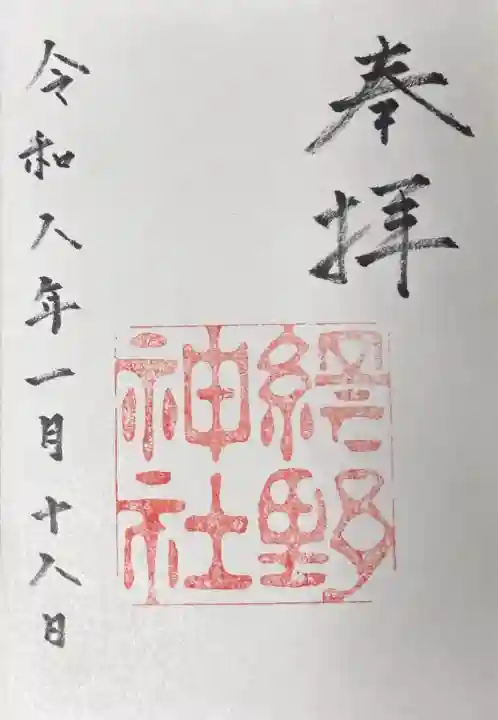 奉拝
綛野
神社
令和八年一月十八日